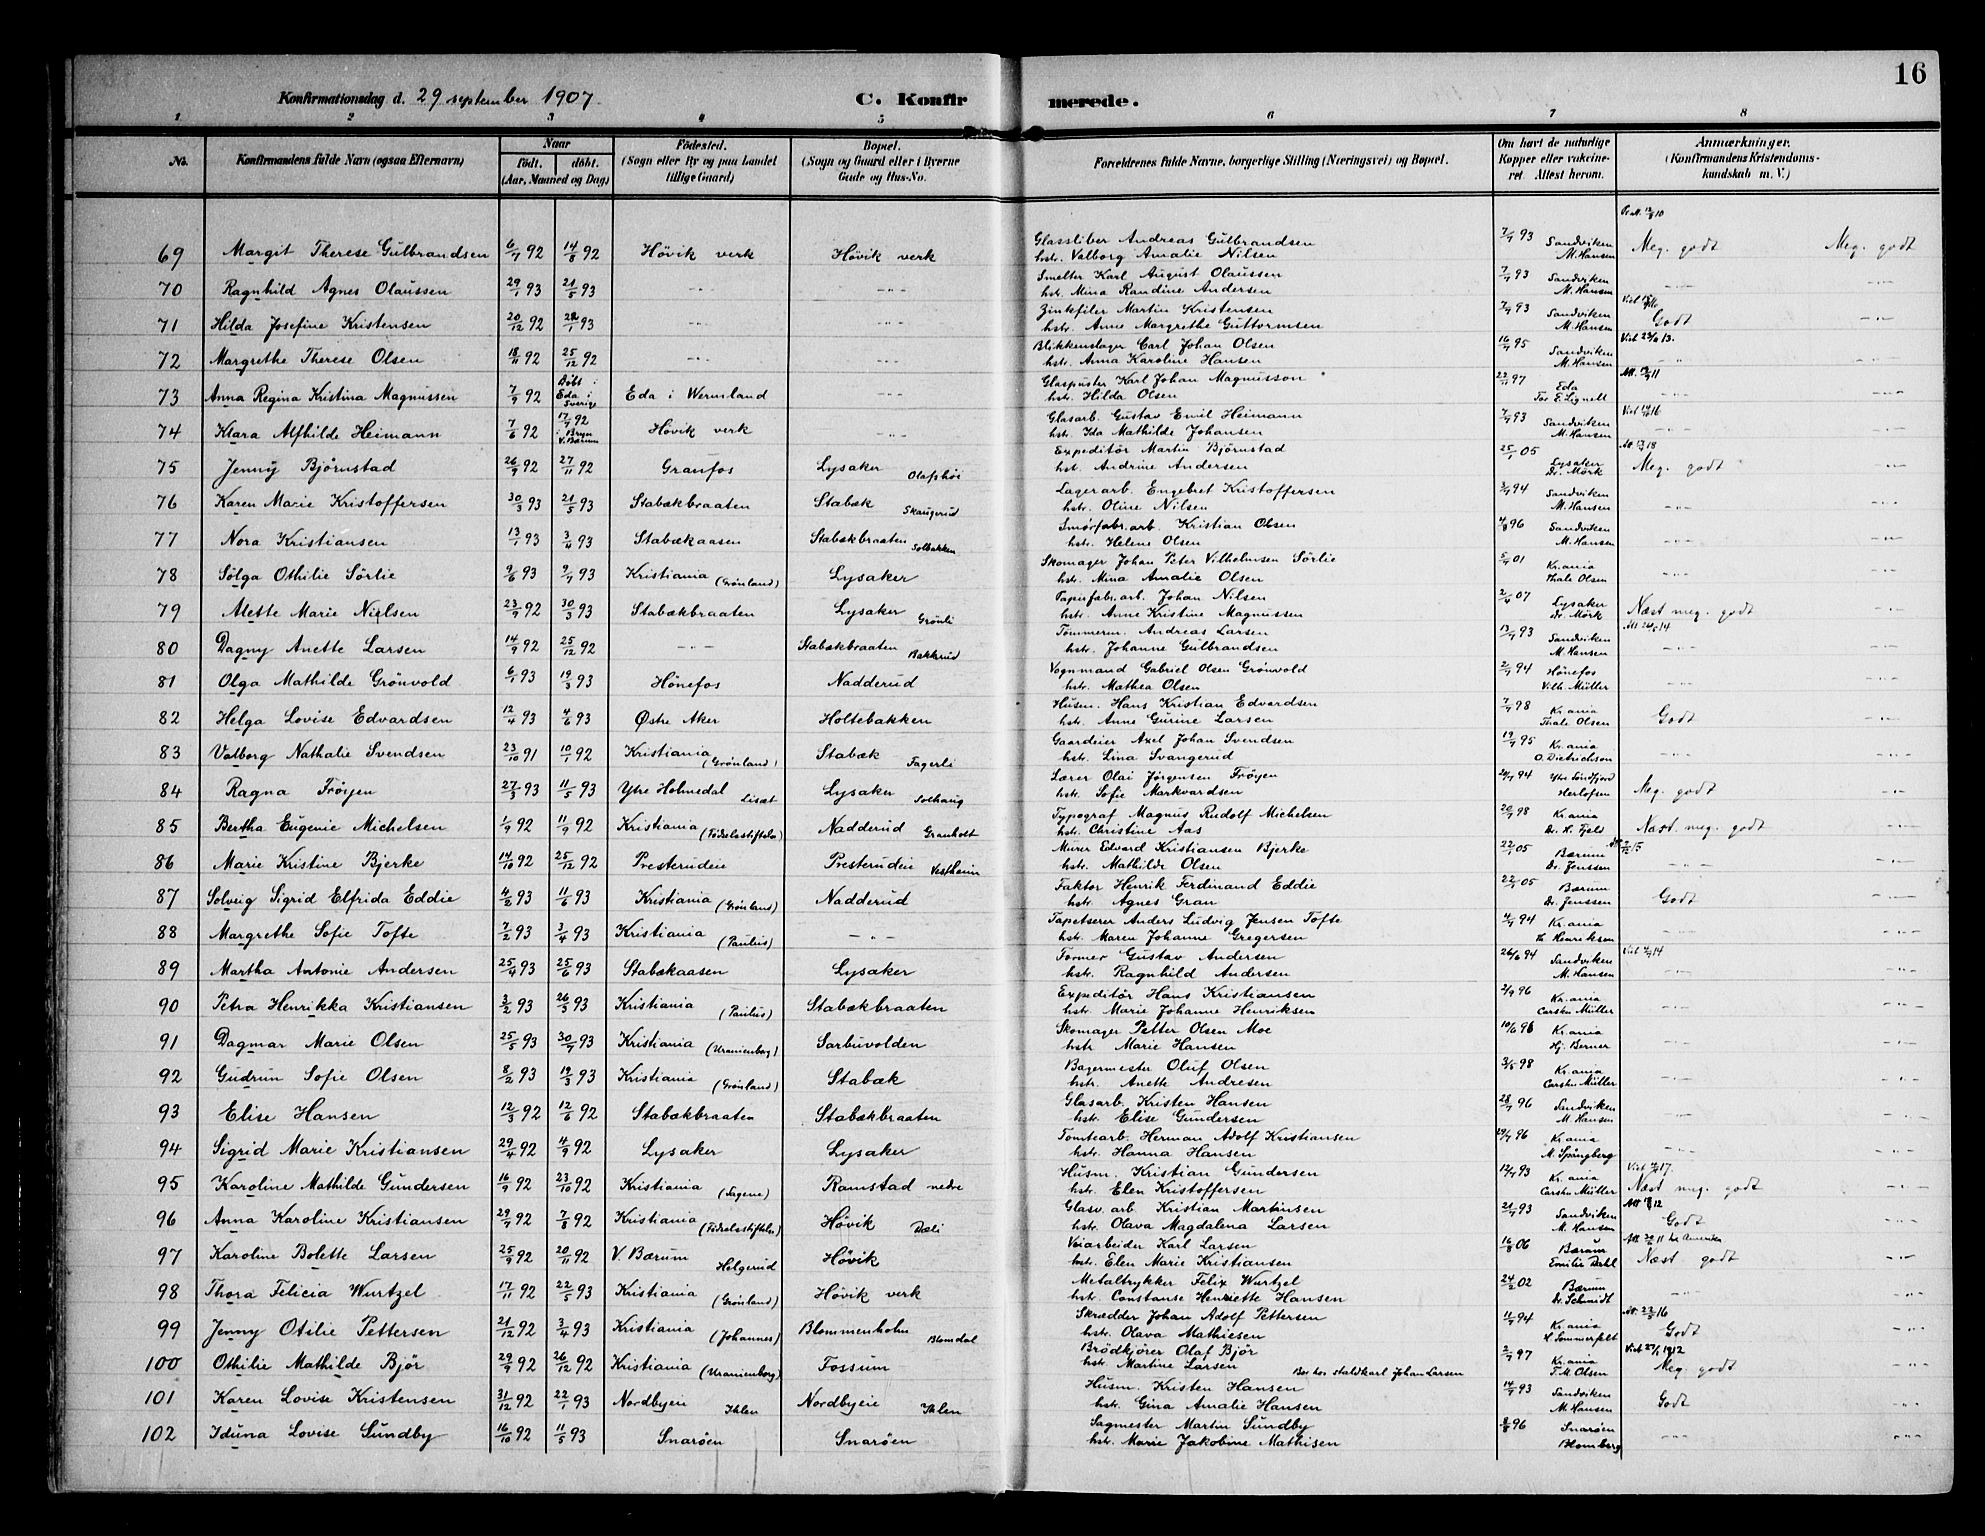 16
Konfirmationsdag d. 29 september 1907.
C. Konfirmerede.
1 2 3 4 5 6 7 8
No. Konfirmandens fulde Navn (ogsaa Efternavn) Naar født. døbt. (Aar, Maaned og Dag) Fødested. (Sogn eller By og paa Landet tillige Gaard) Bopæl. (Sogn og Gaard eller i Byerne Gade og Hus-No. Forældrenes fulde Navne, borgerlige Stilling (Næringsvei) og Bopæl. Om havt de naturlige Kopper eller vakcineret. Attest herom. Anmærkninger. (Konfirmandens Kristendomskundskab m. V.)
69 Margit Therese Gulbrandsen 6/7 92 14/8 92 Hövik verk Hövik verk Glassliber Andreas Gulbrandsen hstr. Valborg Amalie Nilsen 7/7 93 Sandviken M. Hansen Meg. godt Meg. godt
70 Ragnhild Agnes Olaussen 29/1 93 21/5 93 -"- -"- Smelter Karl August Olaussen hstr. Mina Randine Andersen 7/7 93 Sandviken M. Hansen -"- -"-
71 Hilda Josefine Kristensen 20/12 92 22/1 93 -"- -"- Zinkfiler Martin Kristensen hstr. Anne Margrethe Guttormsen 7/7 93 Sandviken M. Hansen Godt -"-
72 Margrethe Therese Olsen 18/11 92 25/12 92 -"- -"- Blikkenslager Carl Johan Olsen hstr. Anna Karoline Hansen 16/7 95 Sandviken M. Hansen -"- -"-
73 Anna Regina Kristina Magnussen 7/9 92 Döbt i Eda i Sverige Eda i Wermland -"- Glaspuster Karl Johan Magnusson hstr. Hilda Olsen 22/11 97 Eda Tor E. Lignell -"-
74 Klara Alfhilde Heimann 7/6 92 17/7 92 i Bryn V. Bærum Hövik verk -"- Glasarb. Gustav Emil Heimann hstr. Ida Mathilde Johansen 7/7 93 Sandviken M. Hansen -"-
75 Jenny Björnstad 26/9 92 27/11 92 Granfos Lysaker Olafshöi Expeditör Martin Björnstad hst. Andrine Andersen 25/1 05 Lysaker Dr. Mörk Meg. godt -"-
76 Karen Marie Kristoffersen 30/3 93 21/5 93 Stabækbraaten Stabæk Skaugerud Lagerarb. Engebret Kristoffersen hstr. Oline Nilsen 3/7 94 Sandviken M. Hansen -"- -"-
77 Nora Kristiansen 13/1 93 3/4 93 Stabækaasen Stabækbraaten Solbakken Smörfabr.arb. Kristian Olsen hstr. Helene Olsen 4/8 96 Sandviken M. Hansen -"- -"-
78 Sölga Othilie Sörlie 9/6 93 9/7 93 Kristiania (Grönland) Lysaker Skomager Johan Peter Vilhelmsen Sörlie hstr. Mina Amalie Olsen 5/7 01 Kr.ania Thale Olsen -"- -"-
79 Alette Marie Nielsen 23/9 92 30/3 93 Stabækbraaten Lysaker Grönli Papirfabr.arb. Johan Nilsen hstr. Anne Kristine Magnussen 2/4 07 Lysaker Dr. Mörk Næst meg. godt -"-
80 Dagny Anette Larsen 14/9 92 25/12 92 -"- Stabækbraaten Bakkerud Tömmerm. Andreas Larsen hstr. Johanne Gulbrandsen 13/7 93 Sandviken M. Hansen -"- -"-
81 Olga Mathilde Grönvold 6/1 93 19/3 93 Hönefos Nadderud Vognmand Gabriel Olsen Grönvold hstr. Mathea Olsen 2/7 94 Hönefos Vilh. Müller -"- -"-
82 Helga Lovise Edvardsen 12/4 93 4/6 93 Østre Aker Holtebakken Husm. Hans Kristian Edvardsen hstr. Anne Gurine Larsen 7/7 98 Kr.ania Thale Olsen Godt -"-
83 Valborg Nathalie Svendsen 23/10 91 10/1 92 Kristiania (Grönland) Stabæk Fagerli Gaardeier Axel Johan Svendsen hstr. Lina Svangerud 19/7 95 Kr.ania O. Dietrichson -"- -"-
84 Ragna Fröyen 27/3 93 11/5 93 Ytre Holmedal Lisæt Lysaker Solhaug Lærer Olai Jörgensen Fröyen hstr. Sofie Markvardsen 20/7 94 Ytre Söndfjord Herlofsen Meg. godt -"-
85 Bertha Eugenie Michelsen 1/9 92 11/9 92 Kristiania (Födselsstiftelse) Nadderud Granholt Typograf Magnus Rudolf Michelsen hstr. Christine Aas 20/9 98 Kr.ania Dr. K. Fjeld Næst. meg. godt -"-
86 Marie Kristine Bjerke 14/10 92 25/12 92 Presterudeie Presterudeie Vestheim Murer Edvard Kristiansen Bjerke hstr. Mathilde Olsen 22/1 05 Bærum Dr. Jenssen -"- -"-
87 Solveig Sigrid Elfrida Eddie 4/2 93 11/6 93 Kristiania (Grönland) Nadderud Faktor Henrik Ferdinand Eddie hstr. Agnes Gran 22/1 05 Bærum Dr. Jenssen Godt -"-
88 Margrethe Sofie Tofte 7/2 93 3/4 93 Kristiania (Paulus) -"- Tapetserer Anders Ludvig Jensen Tofte hstr. Maren Johanne Gregersen 4/7 94 Kr.ania Th. Henriksen -"-
89 Martha Antonie Andersen 25/4 93 25/6 93 Stabækaasen Lysaker Former Gustav Andersen hstr. Ragnhild Andersen 26/6 94 Sandviken M. Hansen -"- -"-
90 Petra Henrikka Kristiansen 3/2 93 26/3 93 Kristiania (Paulus) Stabækbraaten Expeditör Hans Kristiansen hstr. Marie Johanne Henriksen 2/9 96 Kr.ania Carsten Müller -"- -"-
91 Dagmar Marie Olsen 25/5 93 30/7 93 Kristiania (Uranienborg) Sarbuvolden Skomager Petter Olsen Moe hstr. Marie Hansen 10/6 96 Kr.ania Hj. Berner -"- -"-
92 Gudrun Sofie Olsen 8/2 93 19/3 93 Kristiania (Grönland) Stabæk Bagermester Oluf Olsen hstr. Anette Andresen 3/5 98 Kr.ania Carsten Müller -"- -"-
93 Elise Hansen 12/3 92 12/6 92 Stabækbraaten Stabækbraaten Glasarb. Kristen Hansen hstr. Elise Gundersen 28/7 96 Sandviken M. Hansen -"- -"-
94 Sigrid Marie Kristiansen 29/4 92 4/9 92 Lysaker Lysaker Tomtearb. Herman Adolf Kristiansen hstr. Hanna Hansen 29/7 96 Kr.ania M. Spångberg -"- -"-
95 Karoline Mathilde Gundersen 16/9 92 23/10 92 Kristiania (Sagene) Ramstad nedre Husm. Kristian Gundersen hstr. Elen Kristoffersen 12/7 93 Kr.ania Carsten Müller Næst meg. godt -"-
96 Anna Karoline Kristiansen 29/7 92 7/8 92 Kristiania (Födselsstiftelse) Hövik Dæli Glasv.arb. Kristian Martinsen hstr. Olava Magdalena Larsen 21/7 93 Sandviken M. Hansen Godt -"-
97 Karoline Bolette Larsen 25/9 92 20/11 92 V. Bærum Helgerud Hövik Veiarbeider Karl Larsen hstr. Elen Marie Kristiansen 16/8 06 Bærum Emilie Dahl Næst godt -"-
98 Thora Felicia Wurtzel 17/11 92 22/5 93 Kristiania (Grönland) Hövik verk Metaltrykker Felix Wurtzel hstr. Constanse Henriette Hansen 24/2 02 Bærum Dr. Schmidt -"- -"-
99 Jenny Otilie Pettersen 21/12 92 3/4 93 Kristiania (Johannes) Blommenholm Blomdal Skrædder Johan Adolf Pettersen hstr. Olava Mathiesen 11/9 94 Kr.ania H. Sommerfelt Godt -"-
100 Othilie Mathilde Björ 29/9 92 26/12 92 Kristiania (Uranienborg) Fossum Brödkjører Olaf Björ hstr. Martine Larsen Bor hos staldkarl Johan Larsen 2/7 97 Kr.ania F. M. Olsen Meg godt -"-
101 Karen Lovise Kristensen 31/12 92 22/1 93 Nordbyeie Ihlen Nordbyeie Ihlen Husm. Kristen Hansen hstr. Gina Amalie Hansen 14/7 93 Sandviken M. Hansen Godt -"-
102 Iduna Lovise Sundby 16/10 92 11/5 93 Snaröen Snaröen Sagmester Martin Sundby hstr. Marie Jakobine Mathisen 8/8 96 Snaröen Homberg -"- -"-